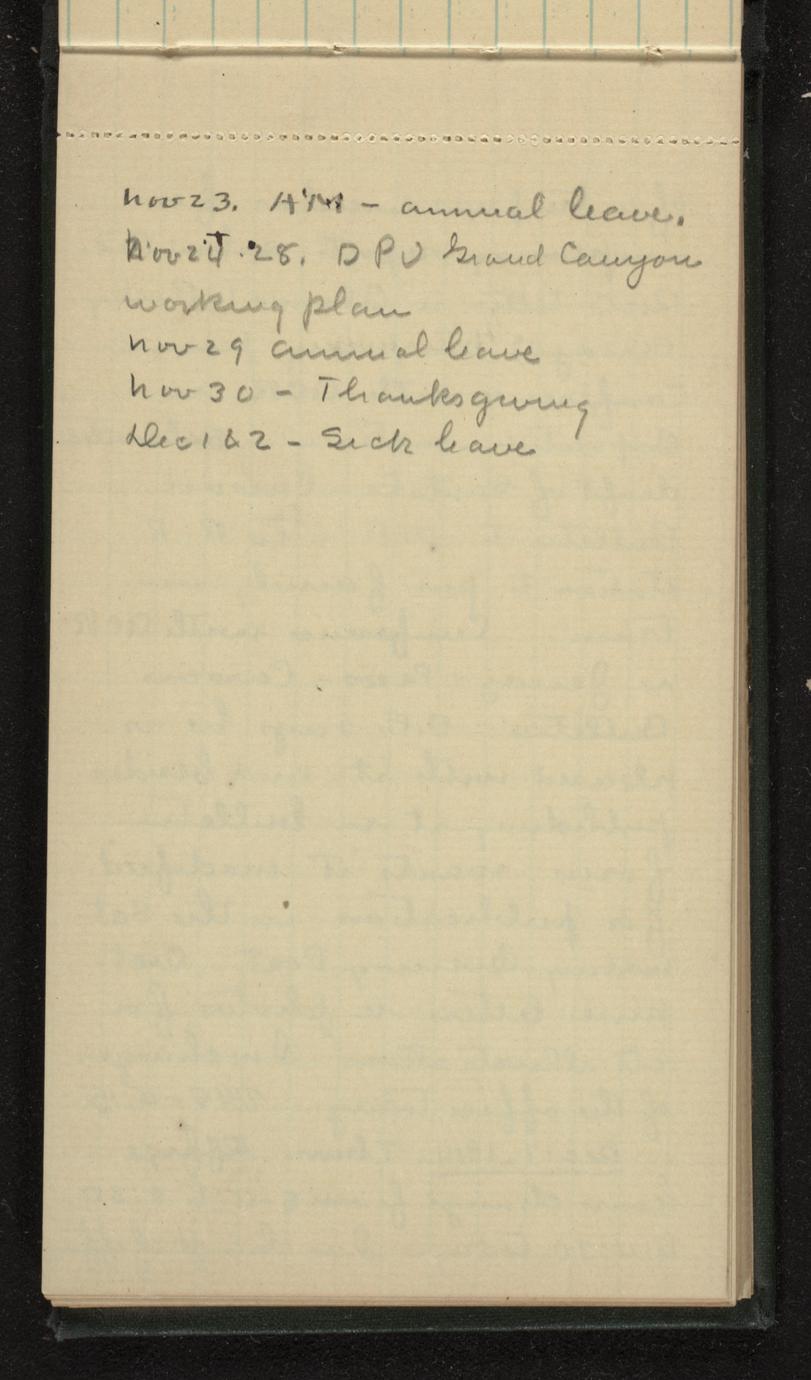 Nov 23. AM - annual leave.
Nov 24 - 28. D P U Grand Canyon
working plan
Nov 29 annual leave
Nov 30 - Thanksgiving
Dec 1 & 2 - Sick leave